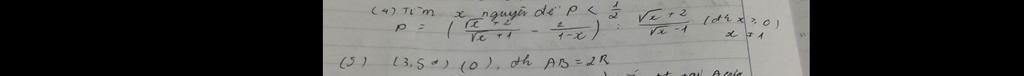 (4) Tìm x nguyên để P < 1/2
P = ( (√x + 2)/(√x + 1) - 2/(1-x) ) : (√x + 2)/(√x - 1) (đk x ≥ 0)
x ≠ 1
(5) (3,5đ) (O), đk AB = 2R